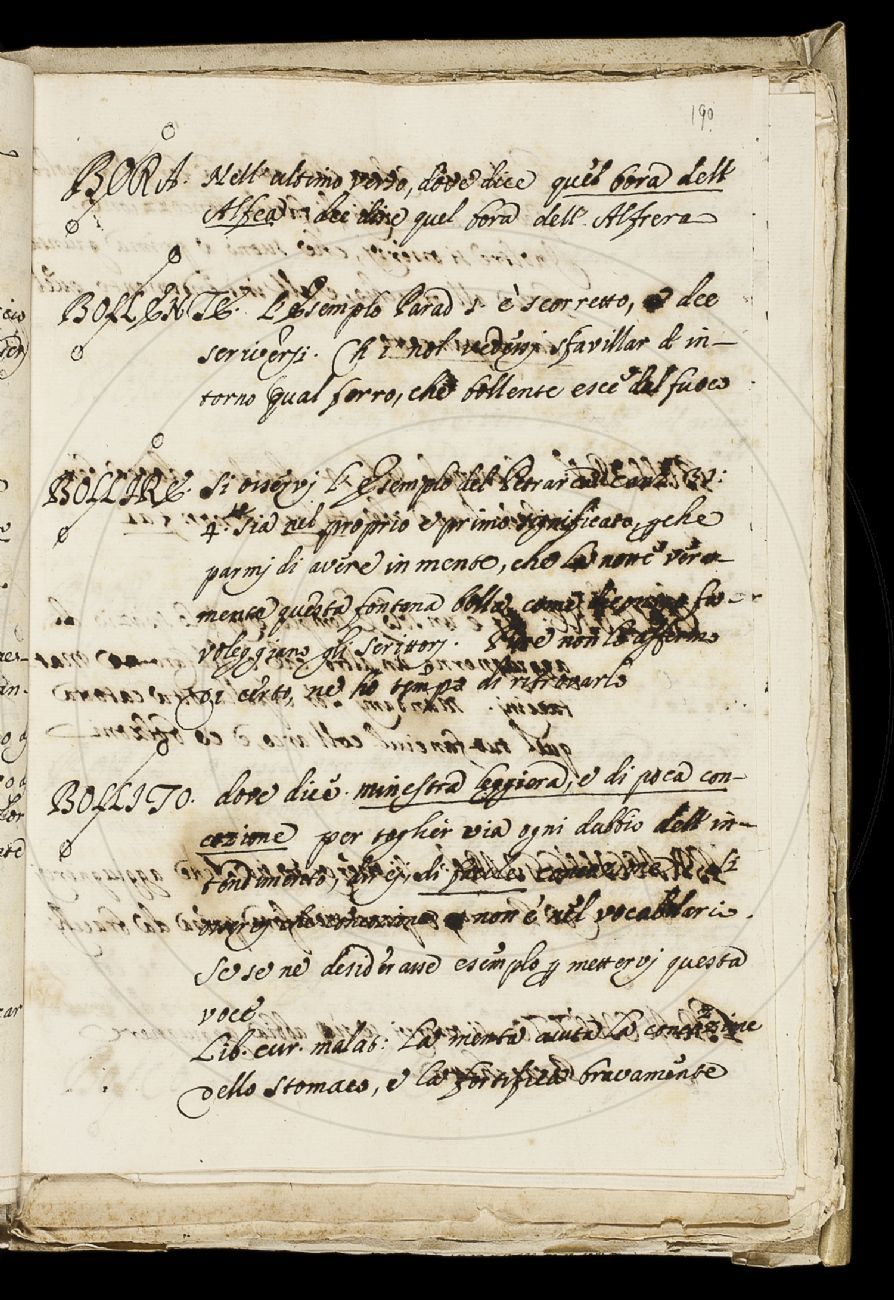 190.
BORA. Nell' ultimo verso, dove dice quel bora dell
Alfea dei dire quel bora dell' Alfrera
BOLLENTE. L'Esemplo Parad 1. è scorretto, e dee
scriversi. Ch' i' nol vedessi sfavillar d' in-
torno qual ferro, che bollente esce del fuoco
BOLLIRE. Si osservj l' Esemplo del Petrarca canz. 31:
4. sia nel proprio e primo significato, pche
parmj di avere in mente, che vera-
mente questa fontana bolla, come fa-
voleggiano gli Scrittorj. Pure non lo affermo
di certo, ne hò tempo di ritrovarlo
BOLLITO. dove dice minestra leggiera, e di poca con-
cozione per toglier via ogni dubbio dell' in-
di
non è nel vocabolario.
Se se ne desiderasse esemplo p mettervj questa
voce
Lib. cur. malat: La menta aiuta la concozione
dello stomaco, e la fortifica bravamente